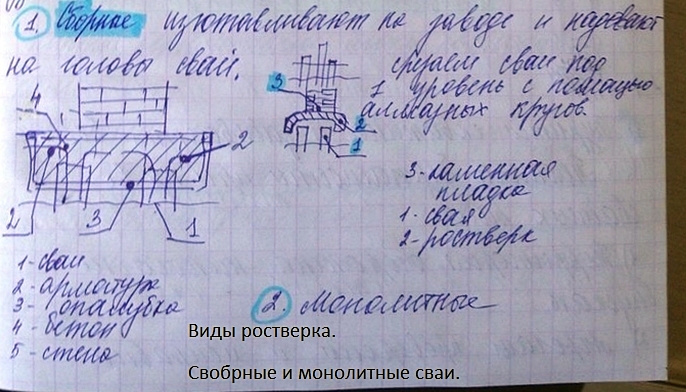 1. Сборные изготавливают на заводе и надевают
на головы свай. срезаем сваи под
1 уровень с помощью
алмазных кругов.
4
3
2
1
2
2
3
1
3 - каменная
кладка
1 - свая
2 - ростверк
1 - сваи
2 - арматура
3 - опалубка
4 - бетон
5 - стена
2. Монолитные
Виды ростверка.
Свобрные и монолитные сваи.